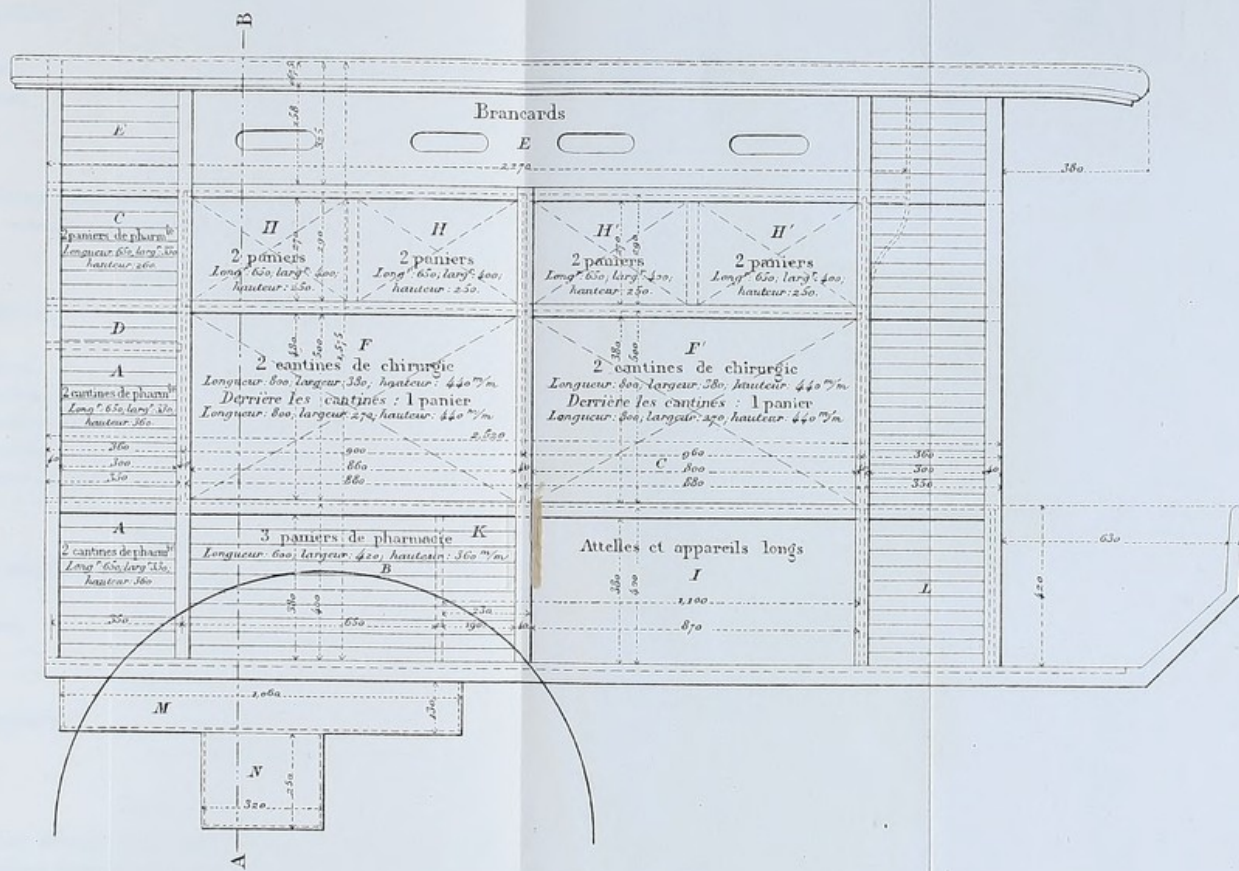 B
Brancards
E
E
258
355
2,270
380
C
2 paniers de pharm^ie
Longueur: 650, larg^r: 350
hauteur: 260.
H
2 paniers
Long^r: 650; larg^r: 400;
hauteur: 250.
270
290
H
2 paniers
Long^r: 650; larg^r: 400;
hauteur: 250.
H'
2 paniers
Long^r: 650; larg^r: 400;
hauteur: 250.
270
290
H'
2 paniers
Long^r: 650; larg^r: 400;
hauteur: 250.
D
A
2 cantines de pharm^ie
Long^r: 650, larg^r: 350,
hauteur: 360.
360
40
300
350
F
2 cantines de chirurgie
Longueur: 800, largeur: 380; hauteur: 440 m/m
Derrière les cantines : 1 panier
Longueur: 800; largeur: 270; hauteur: 440 m/m
480
500
1,575
2,620
900
860
880
40
F'
2 cantines de chirurgie
Longueur: 800, largeur: 380, hauteur: 440 m/m
Derrière les cantines : 1 panier
Longueur: 800; largeur: 270, hauteur: 440 m/m
380
500
960
C
800
880
360
300
40
350
A
2 cantines de pharm^ie
Long^r: 650; larg^r: 350;
hauteur: 360
350
3 paniers de pharmacie
K
Longueur: 600; largeur: 420; hauteur: 360 m/m
B
380
400
650
230
190
40
Attelles et appareils longs
I
380
400
1,100
870
L
420
630
1,060
M
130
N
250
320
A